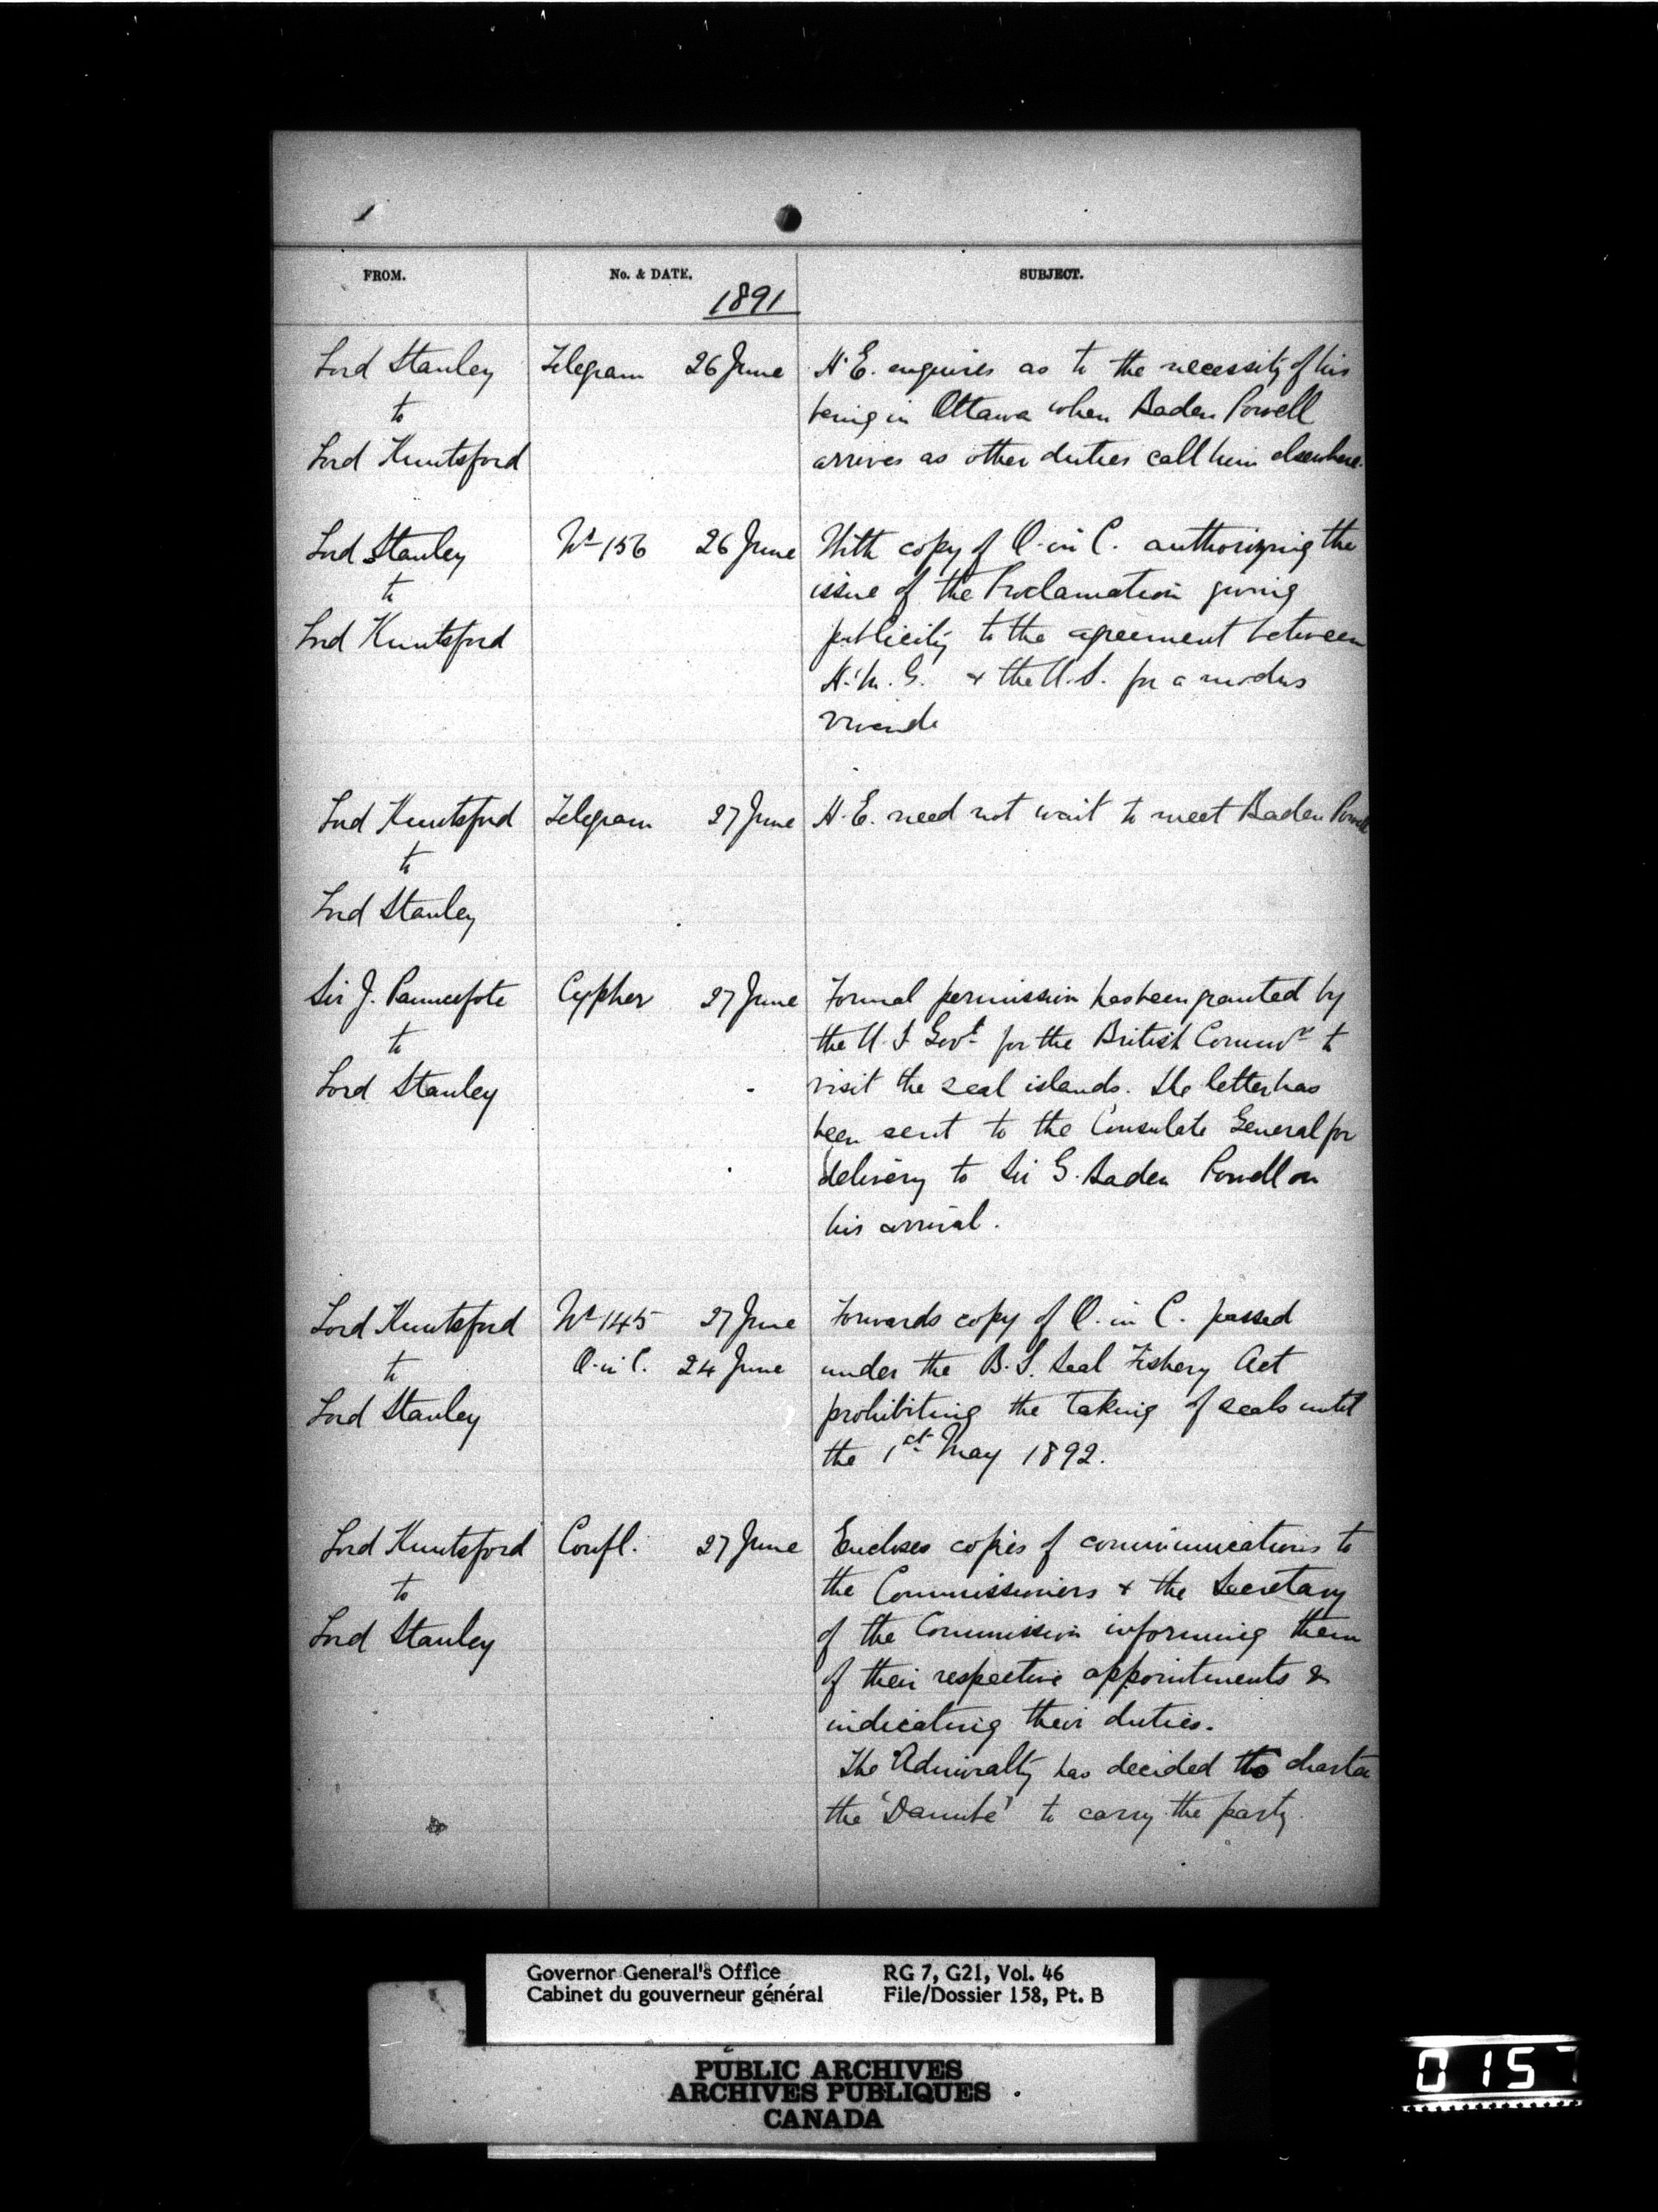 1
FROM. No. & DATE. SUBJECT.
1891
Lord Stanley Telegram 26 June H.E. enquires as to the necessity of his
to being in Ottawa when Baden Powell
Lord Knutsford arrives as other duties call him elsewhere.
Lord Stanley No 156 26 June With copy of O. in C. authorizing the
to issue of the Proclamation giving
Lord Knutsford publicity to the agreement between
H.M.G. & the U.S. for a modus
vivendi
Lord Knutsford Telegram 27 June H.E. need not wait to meet Baden Powell
to
Lord Stanley
Sir J. Pauncefote Cypher 27 June Formal permission has been granted by
to the U.S. Govt. for the British Commrs to
Lord Stanley visit the seal islands. The letter has
been sent to the Consulate General for
delivery to Sir G. Baden Powell on
his arrival.
Lord Knutsford No 145 27 June Forwards copy of O. in C. passed
to O. in C. 24 June under the B.S. Seal Fishery Act
Lord Stanley prohibiting the taking of seals until
the 1st May 1892.
Lord Knutsford Confl. 27 June Encloses copies of communications to
to the Commissioners & the Secretary
Lord Stanley of the Commission informing them
of their respective appointments &
indicating their duties.
The Admiralty has decided to charter
the 'Danube' to carry the party.
Governor General's Office RG 7, G21, Vol. 46
Cabinet du gouverneur général File/Dossier 158, Pt. B
PUBLIC ARCHIVES
ARCHIVES PUBLIQUES
CANADA
0157